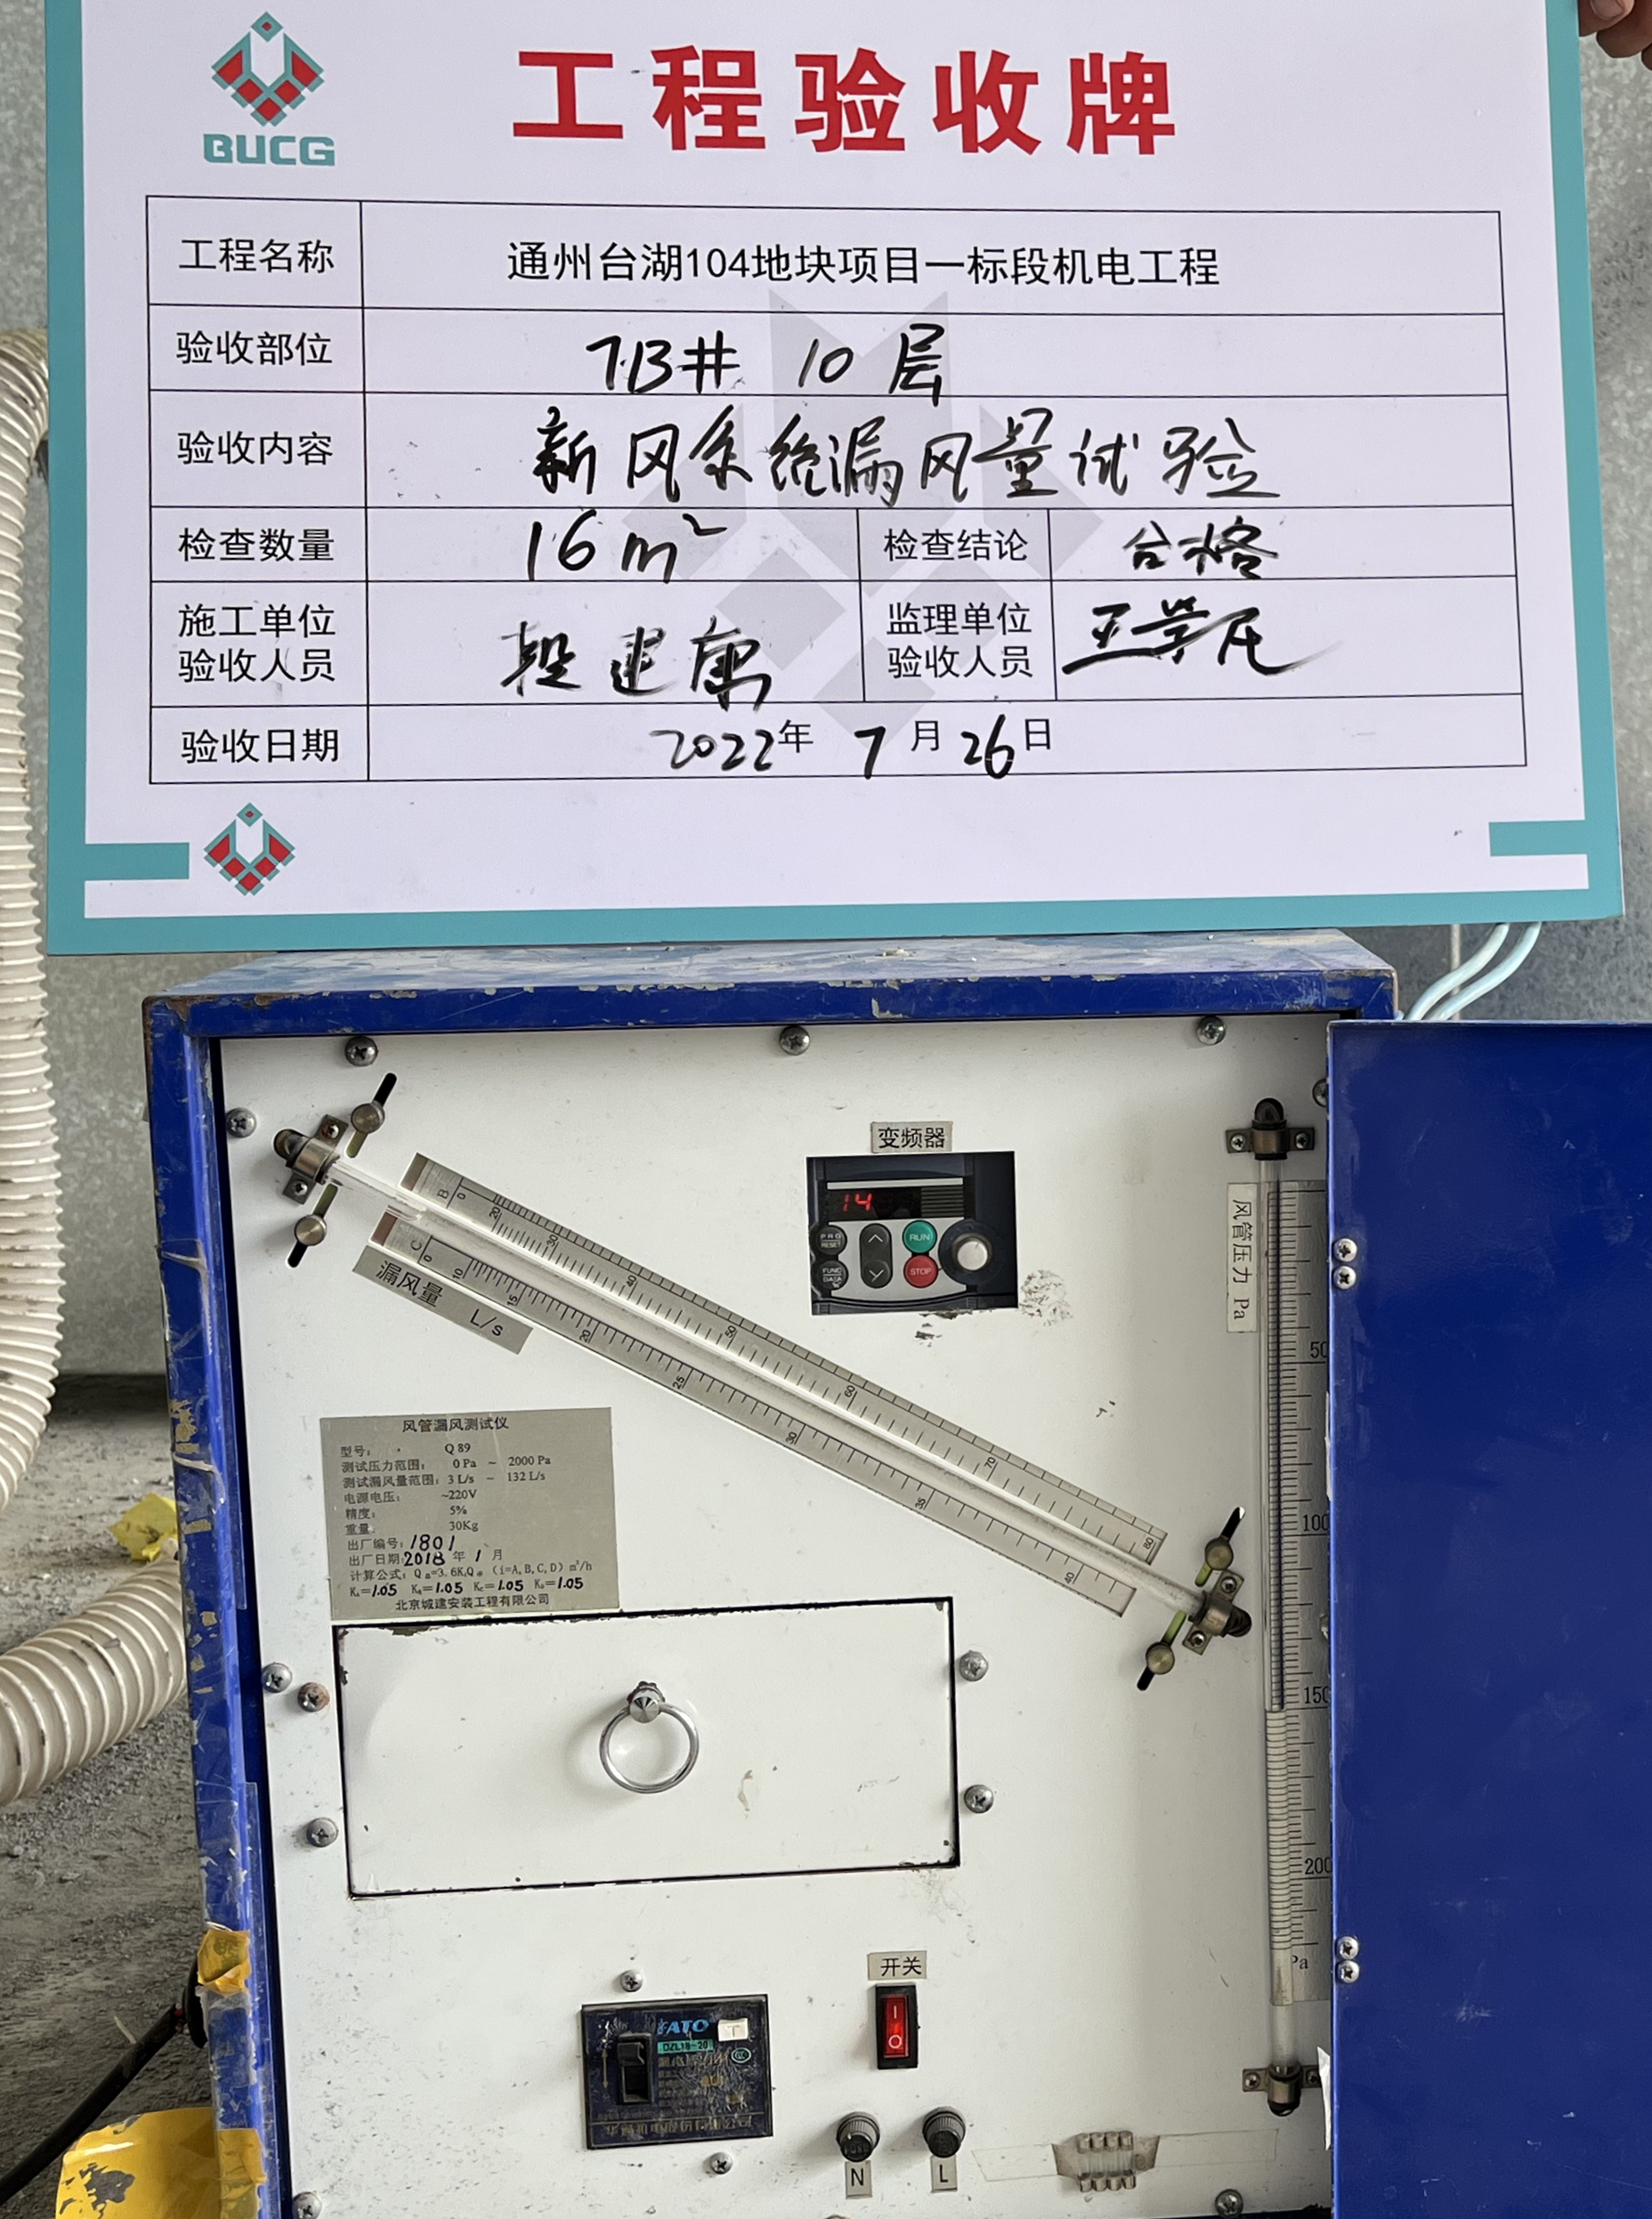 BUCG
工程验收牌
工程名称 通州台湖104地块项目一标段机电工程
验收部位 7B# 10层
验收内容 新风系统漏风量试验
检查数量 16m² 检查结论 合格
施工单位验收人员 段建康 监理单位验收人员
验收日期 2022年 7月26日
变频器
14
PRG RESET
RUN
FUNC DATA
STOP
风管压力 Pa
50
100
150
200
Pa
B 0 20 30 40 50 60 70 80
C 0 10 15 20 25 30 35 40
漏风量 L/s
风管漏风测试仪
型号: Q89
测试压力范围: 0 Pa ~ 2000 Pa
测试漏风量范围: 3 L/s ~ 132 L/s
电源电压: ~220V
精度: 5%
重量: 30Kg
出厂编号: 1801
出厂日期: 2018年1月
计算公式: Q = 3.6KiQ (i=A,B,C,D) m³/h
K=1.05 K=1.05 Kc=1.05 K=1.05
北京城建安装工程有限公司
开关
FATO
T
DZL18-20
N
L